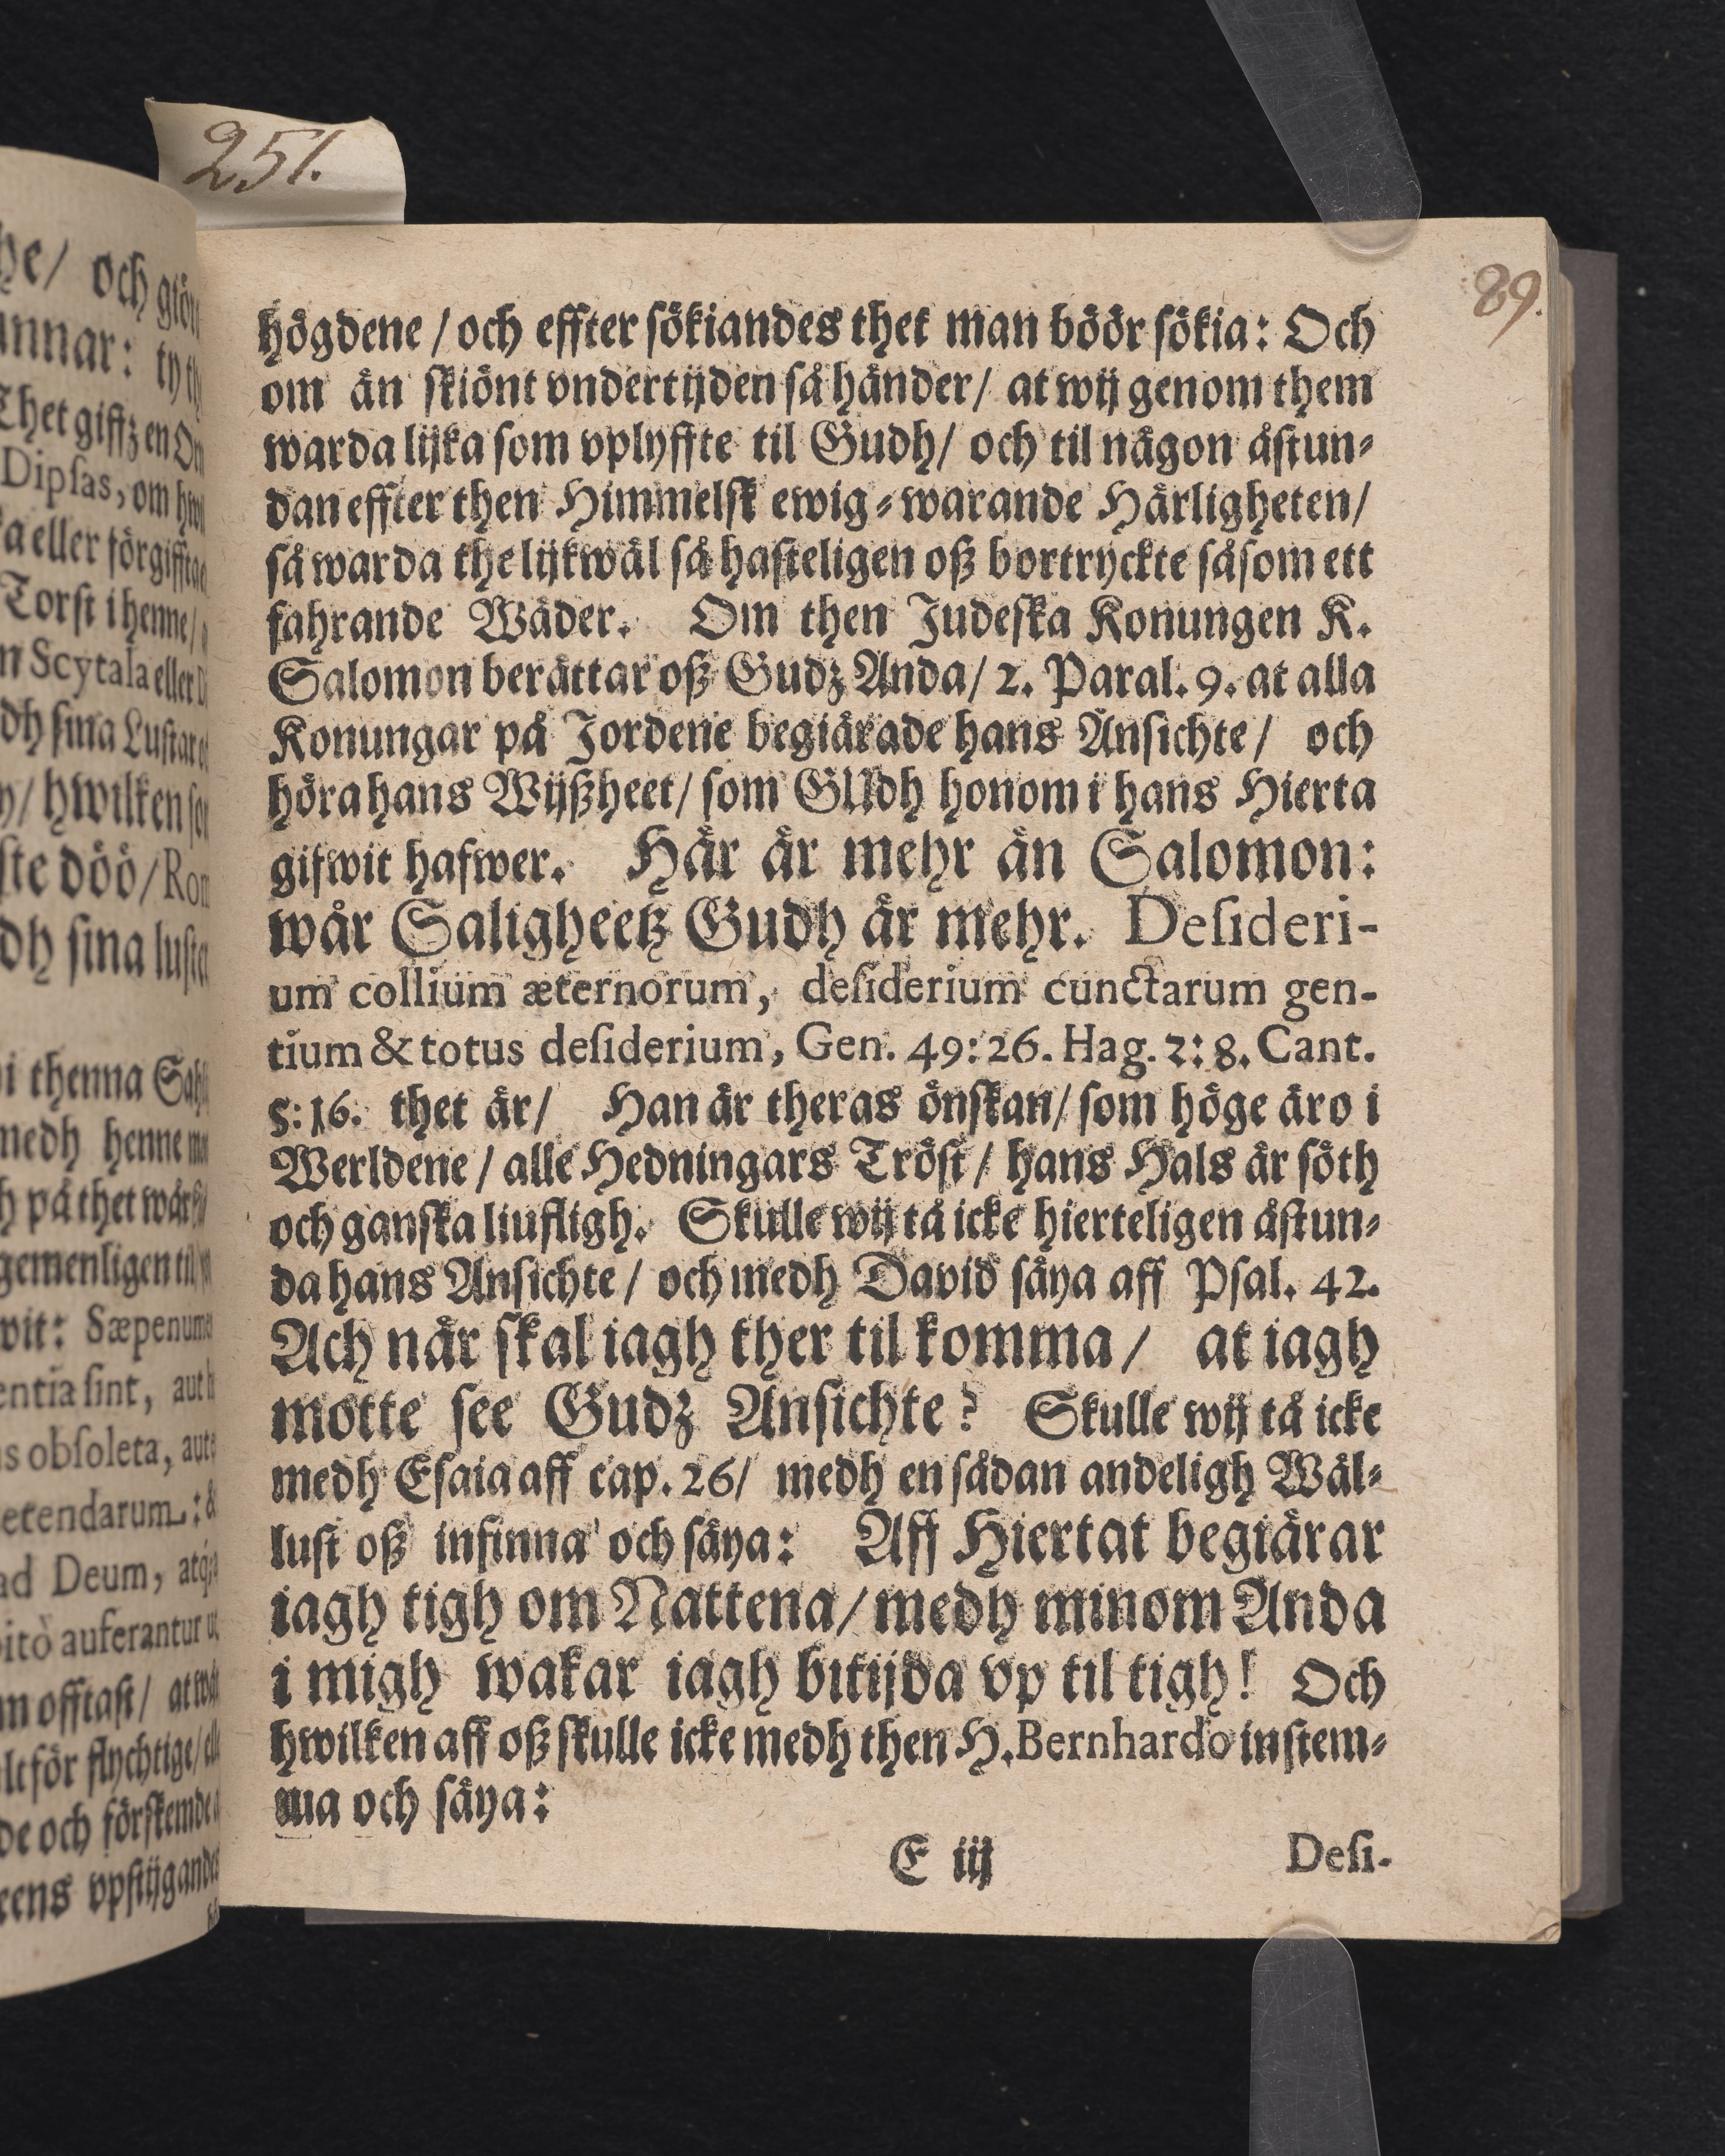 251.
89.
högdene / och effter sökiandes thet man böör sökia: Och
om än skiönt vndertijden så händer / at wij genom them
warda lijka som vplyffte til Gudh / och til någon åstun-
dan effter then Himmelsk ewig-warande Härligheten /
så warda the lijkwäl så hasteligen oß bortryckte såsom ett
fahrande Wäder. Om then Judeska Konungen K.
Salomon berättar oß Gudz Anda / 2. Paral. 9. at alla
Konungar på Jordene begiärade hans Ansichte / och
höra hans Wijßheet / som GUdh honom i hans Hierta
gifwit hafwer. Här är mehr än Salomon:
wår Saligheetz Gudh är mehr. Desideri-
um collium æternorum, desiderium cunctarum gen-
tium & totus desiderium, Gen. 49: 26. Hag. 2: 8. Cant.
5: 16. thet är / Han är theras önskan / som höge äro i
Werldene / alle Hedningars Tröst / hans Hals är söth
och ganska liufligh. Skulle wij tå icke hierteligen åstun-
da hans Ansichte / och medh David säya aff Psal. 42.
Ach när skal iagh ther til komma / at iagh
motte see Gudz Ansichte? Skulle wij tå icke
medh Esaia aff cap. 26 / medh en sådan andeligh Wäl-
lust oß infinna och säya: Aff Hiertat begiärar
iagh tigh om Nattena / medh minom Anda
i migh wakar iagh bitijda vp til tigh! Och
hwilken aff oß skulle icke medh then H. Bernhardo instem-
ma och säya:
E iij Desi-